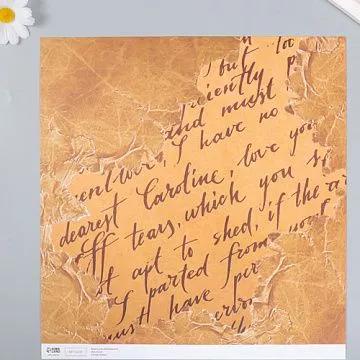 but too
ciently
and must
I have no
dearest Caroline, love you
off tears, which you s
of apt to shed, if the
I parted from
must have per
error